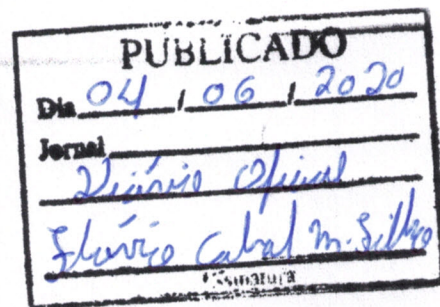 PUBLICADO
Dia 04 / 06 / 2020
Jornal
Diário Oficial
Flávio Cabral M.
Assinatura